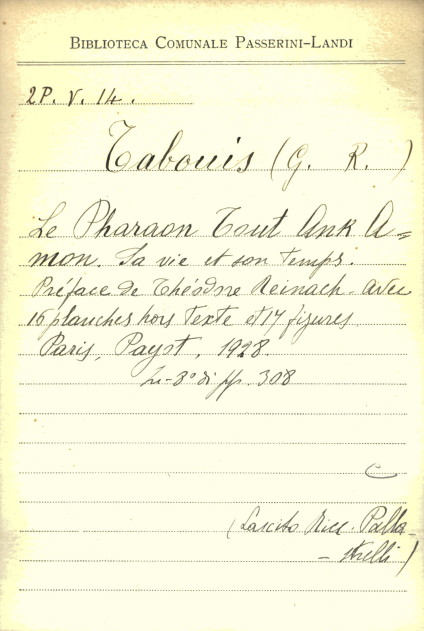 BIBLIOTECA COMUNALE PASSERINI-LANDI
2P. V. 14.
Tabouis (G. R. )
Le Pharaon Tout Ank A=
mon. Sa vie et son temps.
Préface de Théodore Reinach. avec
16 planches hors texte et 17 figures
Paris, Payot, 1928.
In-8° di pp. 308
C
(Lascito Palla-
strelli)